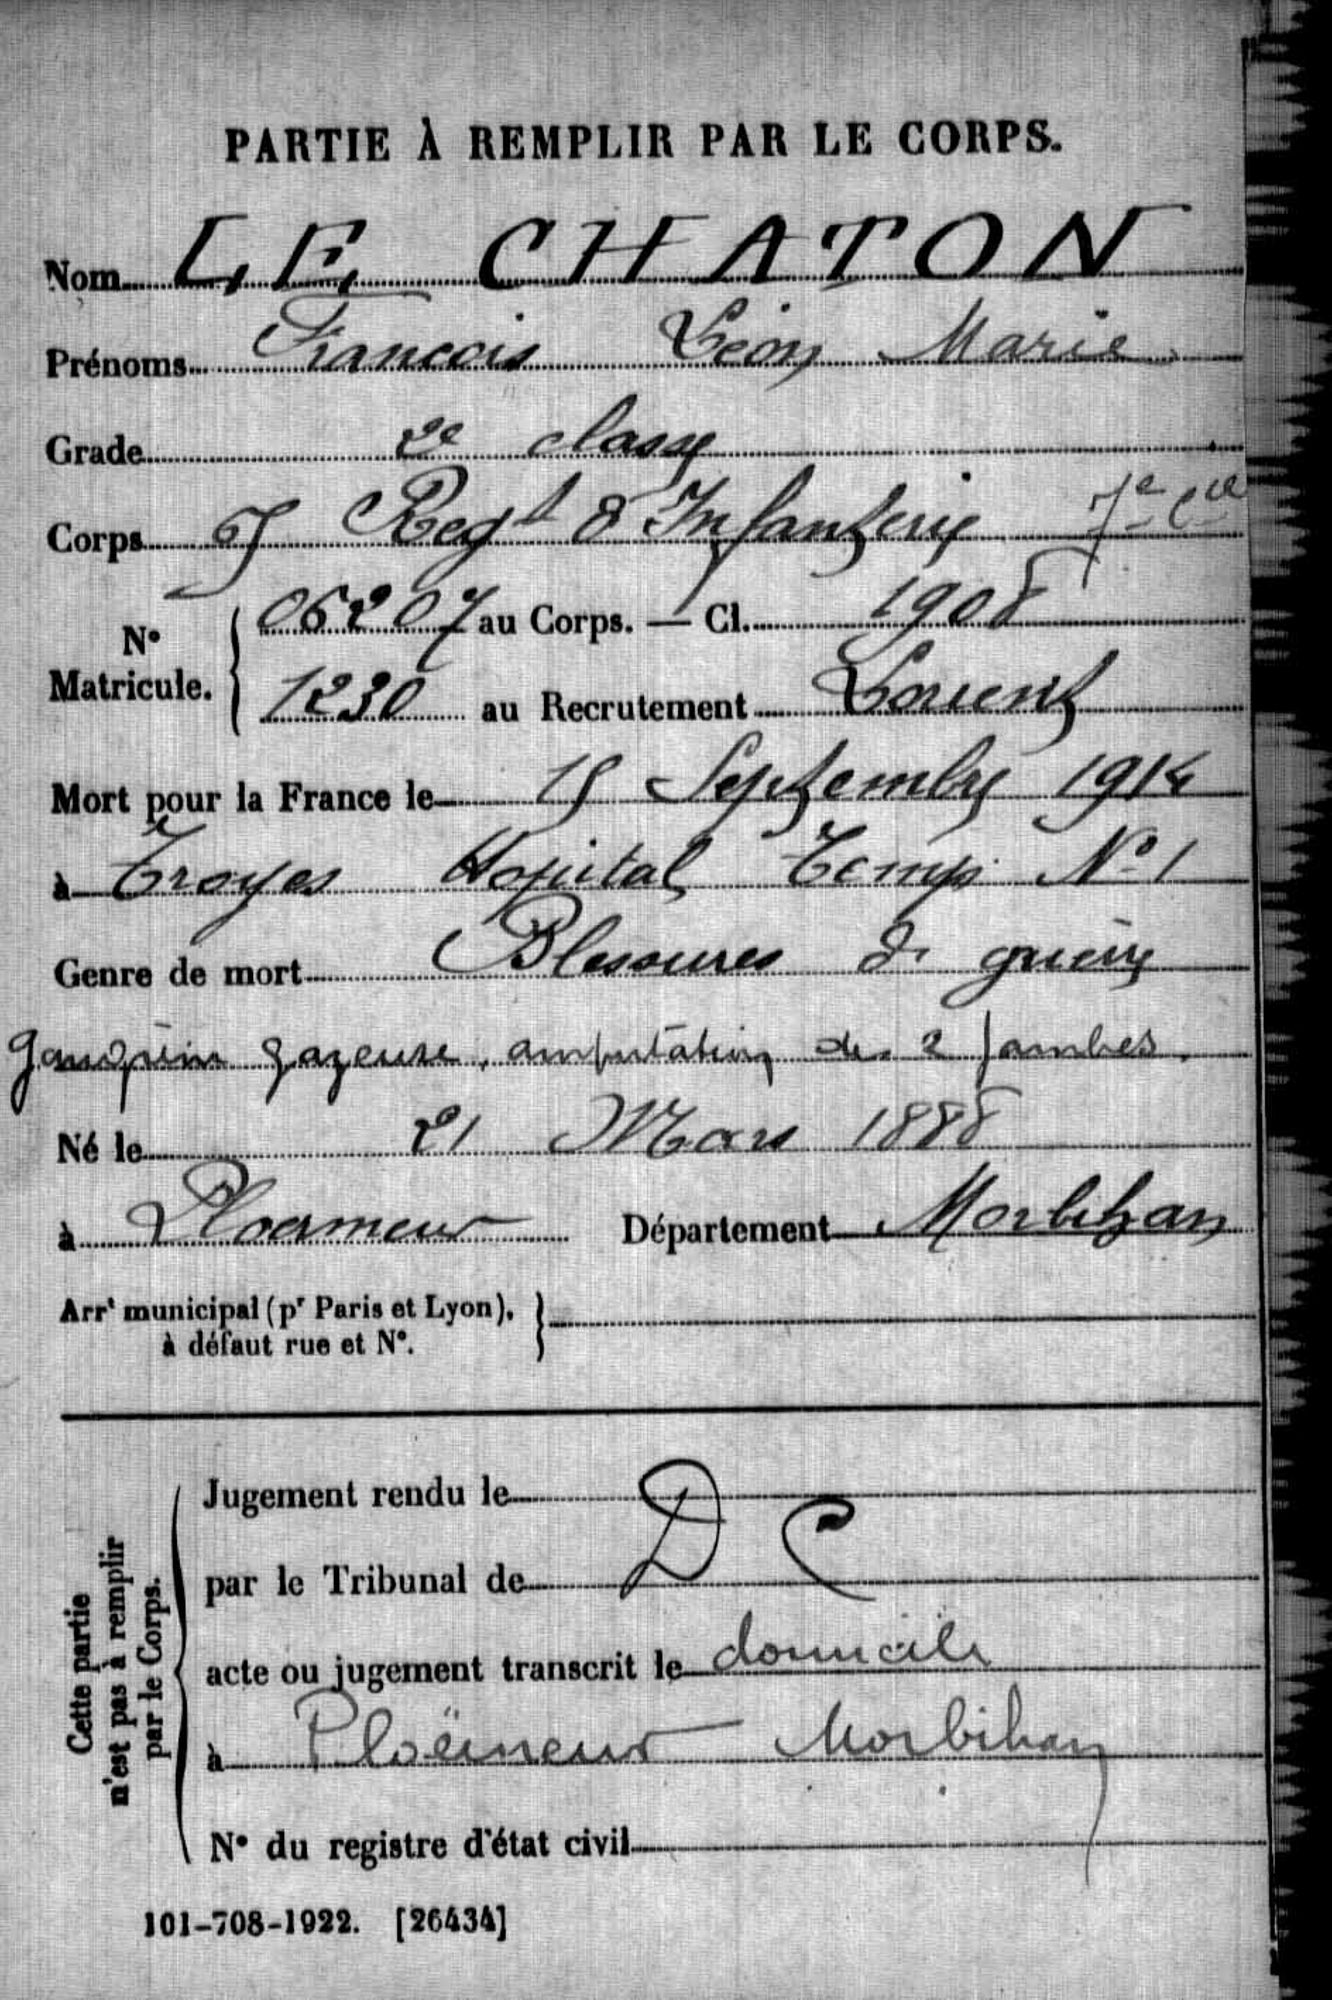 PARTIE À REMPLIR PAR LE CORPS.
Nom LE CHATON
Prénoms Francois Léon Marie
Grade 2e classe
Corps Regt d'Infanterie 7e Cie
N° Matricule. 06207 au Corps. — Cl. 1908
1230 au Recrutement Lorient
Mort pour la France le 15 Septembre 1914
à Troyes Hopital Temp. N° 1
Genre de mort Blessures de guerre
gangrène gazeuse, amputation des 2 jambes.
Né le 21 Mars 1888
à Ploemeur Département Morbihan
Arrt municipal (pr Paris et Lyon),
à défaut rue et N°.
Cette partie
n'est pas à remplir
par le Corps.
Jugement rendu le
par le Tribunal de D C
acte ou jugement transcrit le domicile
à Ploëmeur Morbihan
N° du registre d'état civil
101-708-1922. [26434]